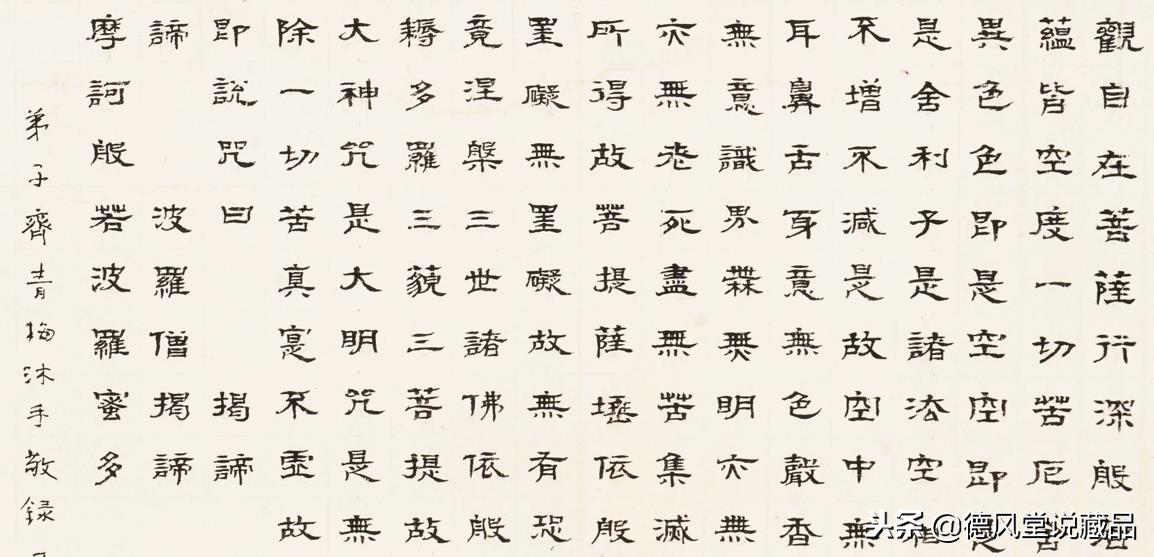 觀自在菩薩行深般若
蘊皆空度一切苦厄舍
異色色即是空空即是
是舍利子是諸法空相
不增不減是故空中無
耳鼻舌身意無色聲香
無意識界無無明亦無
亦無老死盡無苦集滅
所得故菩提薩埵依般
罣礙無罣礙故無有恐
竟涅槃三世諸佛依般
耨多羅三藐三菩提故
大神咒是大明咒是無
除一切苦真實不虛故
即說咒曰 揭諦
諦 波羅僧揭諦
摩訶般若波羅蜜多
弟子齊青梅沐手敬録
头条 @德风堂说藏品